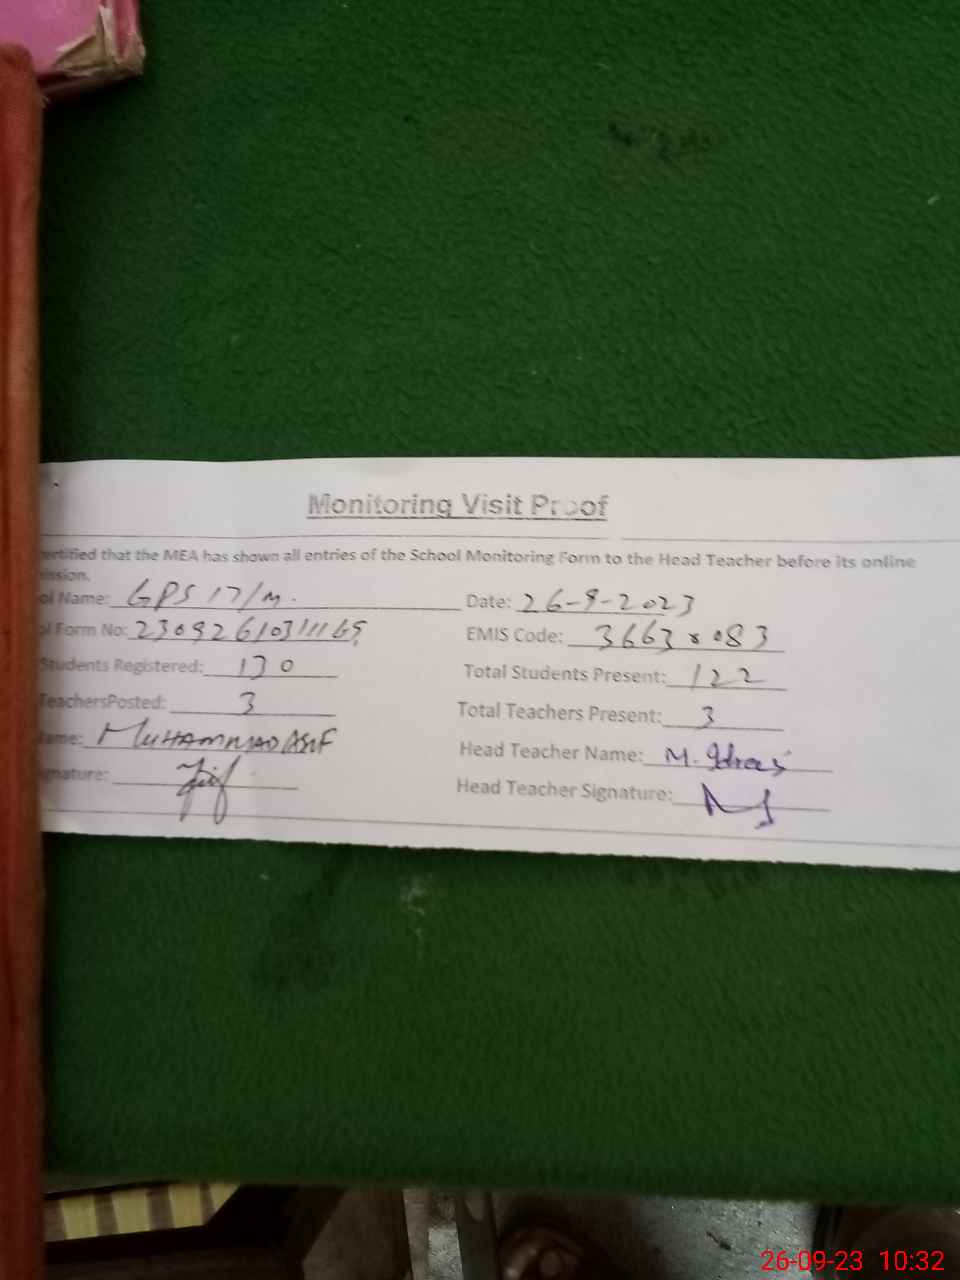 Monitoring Visit Proof
ertified that the MEA has shown all entries of the School Monitoring Form to the Head Teacher before its online
ission.
ol Name: GPS 17/M. Date: 26-9-2023
ol Form No: EMIS Code: 36630083
Students Registered: 130 Total Students Present: 122
TeachersPosted: 3 Total Teachers Present: 3
ame: MUHAMMAD ASIF Head Teacher Name: M. Idrees
gnature: Head Teacher Signature:
26-09-23 10:32